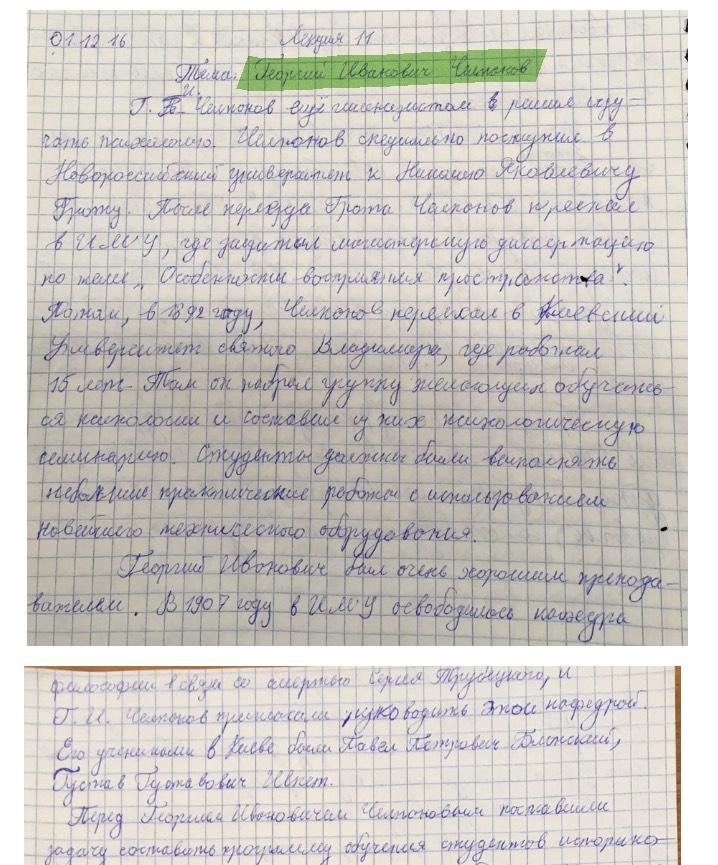 01.12.16 Лекция 11
Тема: Георгий Иванович Челпанов
Г. И. Челпанов ещё гимназистом решил изу-
чать психологию. Челпанов специально поступил в
Новороссийский университет к Николаю Яковлевичу
Гроту. После переезда Грота Челпанов приехал
в ИМУ, где защитил магистерскую диссертацию
по теме „Особенности восприятия пространства".
Потом, в 1892 году, Челпанов переехал в Киевский
Университет святого Владимира, где работал
15 лет. Там он набрал группу желающих обучать-
ся психологии и составил из них психологическую
семинарию. Студенты должны были выполнять
небольшие практические работы с использованием
новейшего технического оборудования.
Георгий Иванович был очень хорошим препода-
вателем. В 1907 году в ИМУ освободилась кафедра
философии в связи со смертью Сергея Трубецкого, и
Г. И. Челпанова пригласили руководить этой кафедрой.
Его учениками в Киеве были Павел Петрович Блонский,
Густав Густавович Шпет.
Перед Георгием Ивановичем Челпановым поставили
задачу составить программу обучения студентов историко-